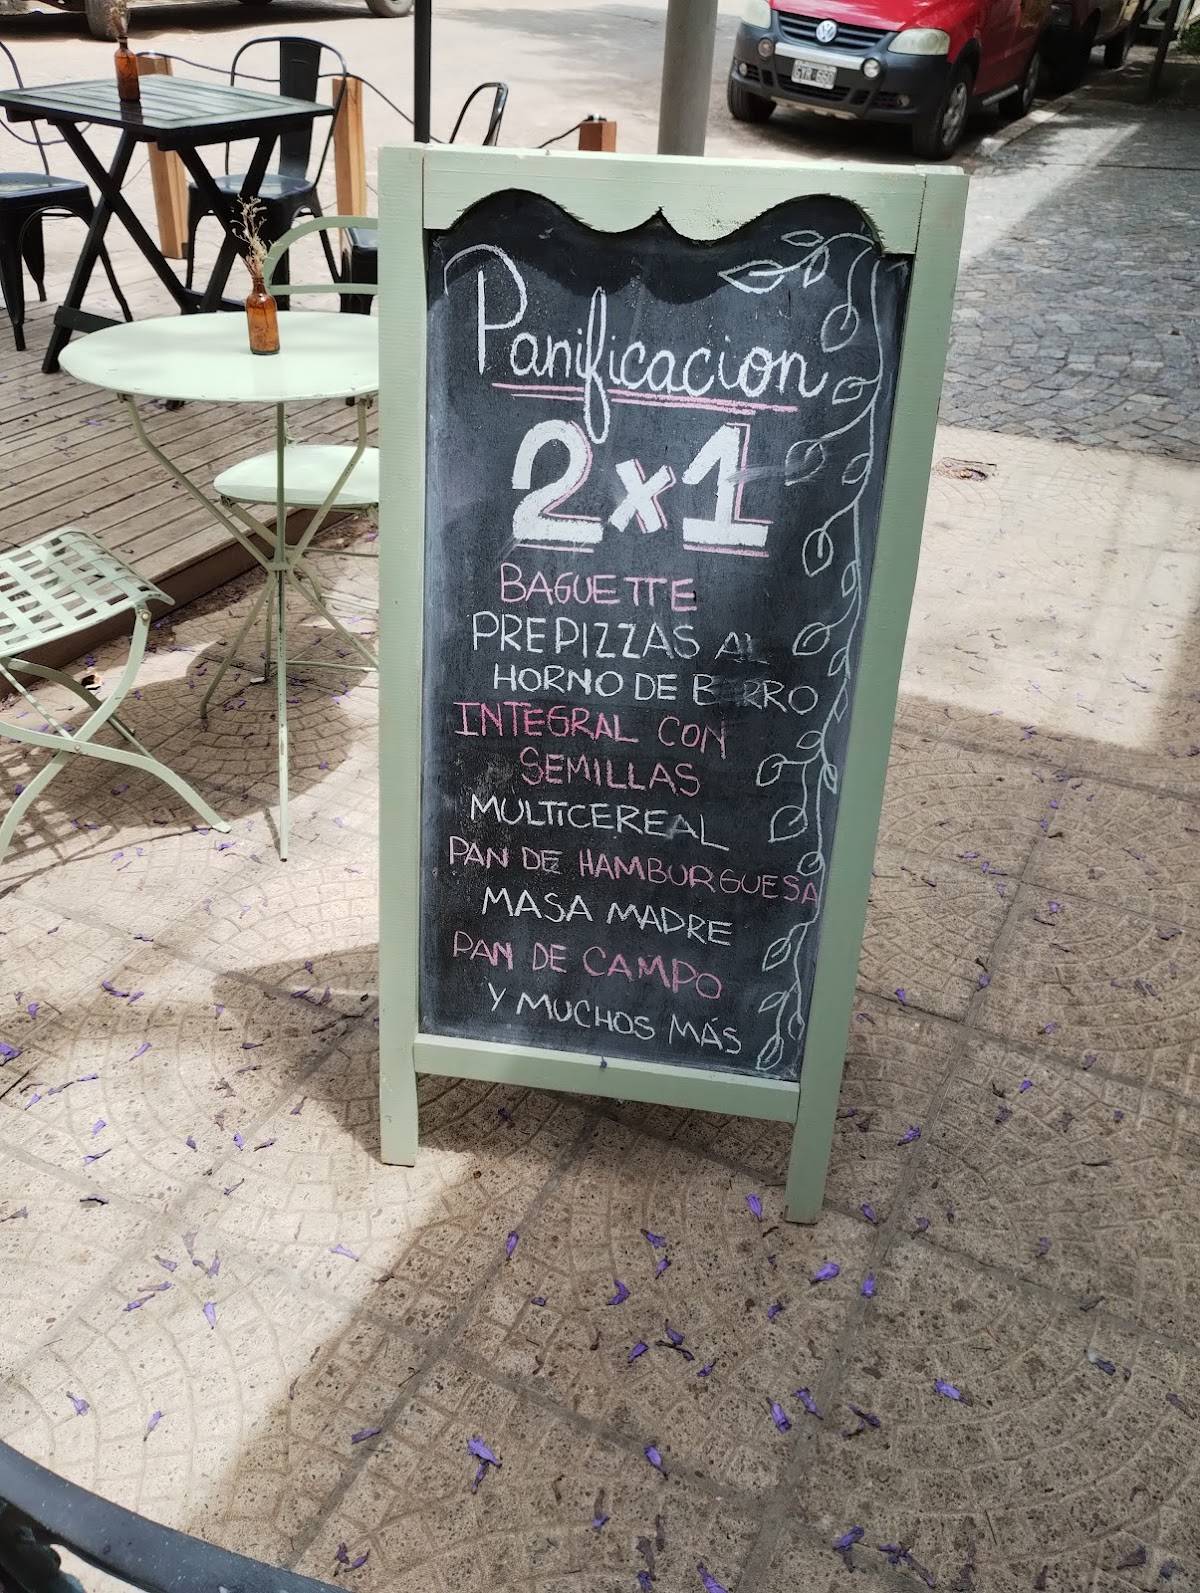 Panificacion
2x1
BAGUETTE
PREPIZZAS AL
HORNO DE BARRO
INTEGRAL CON
SEMILLAS
MULTICEREAL
PAN DE HAMBURGUESA
MASA MADRE
PAN DE CAMPO
Y MUCHOS MÁS